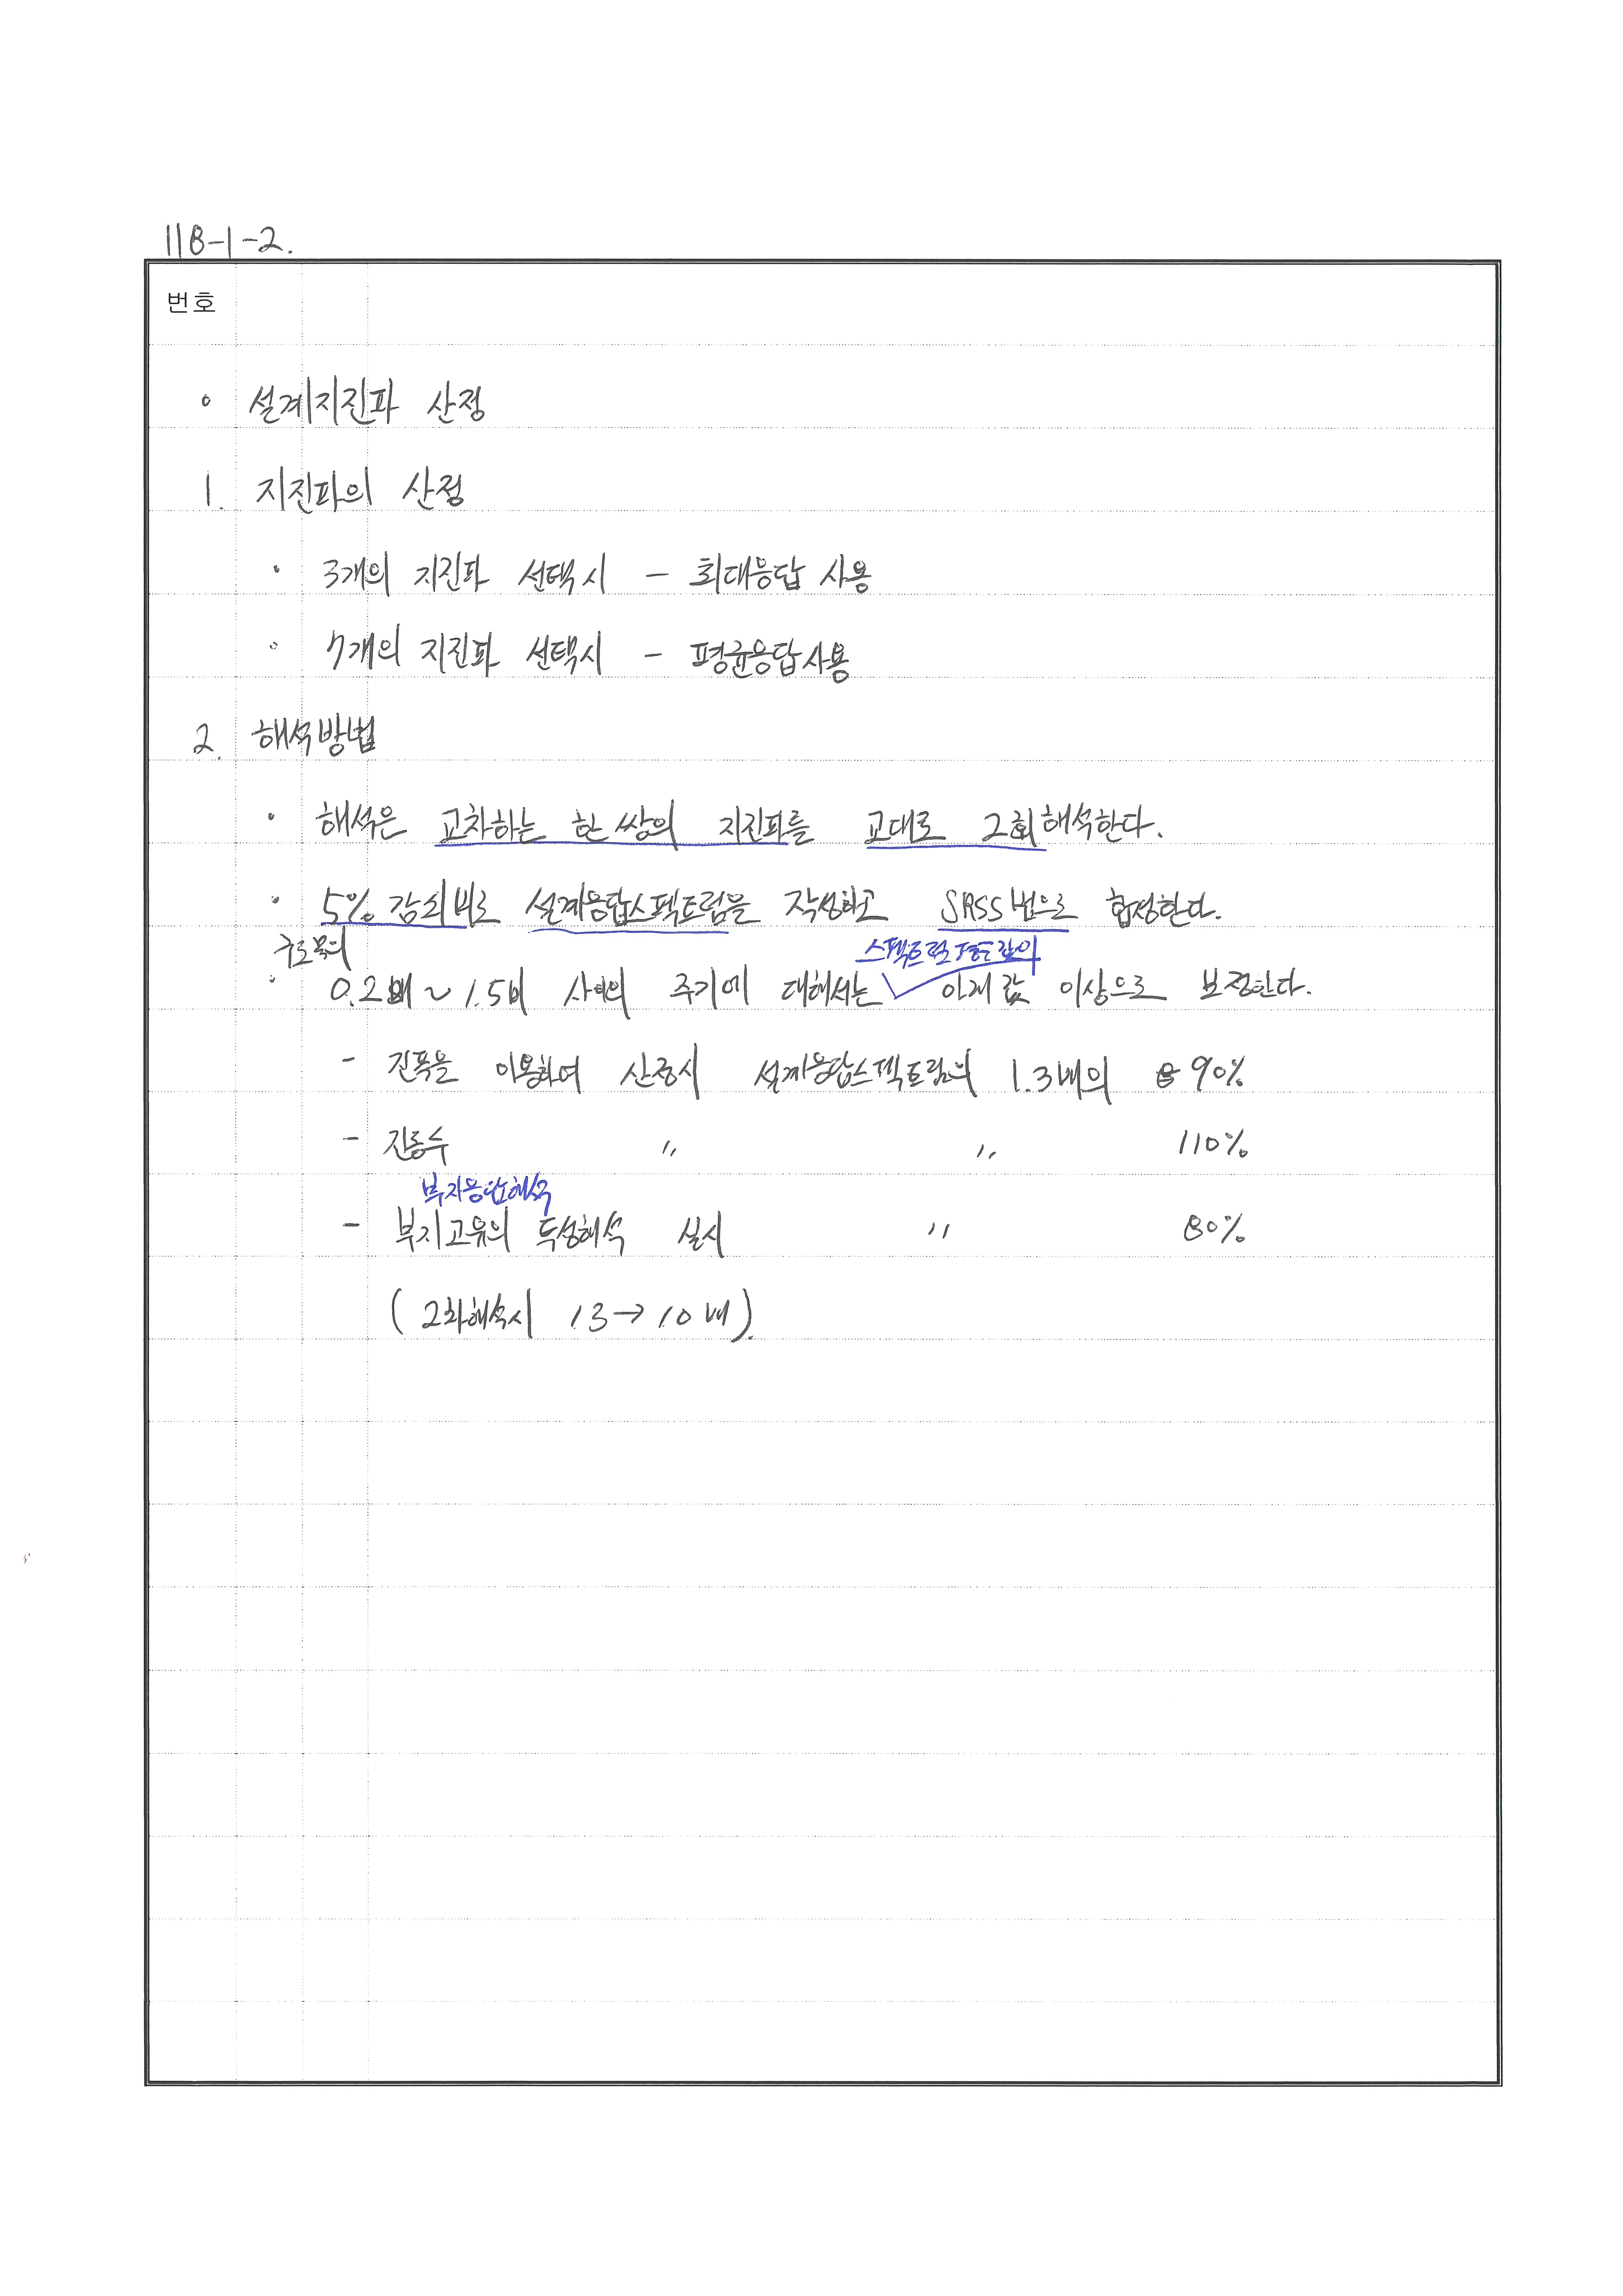 118-1-2.
번호
◦ 설계지진파 산정
1. 지진파의 산정
· 3개의 지진파 선택시 - 최대응답 사용
· 7개의 지진파 선택시 - 평균응답사용
2. 해석방법
· 해석은 교차하는 한 쌍의 지진파를 교대로 2회 해석한다.
· 5% 감쇠비로 설계응답스펙트럼을 작성하고 SRSS법으로 합정한다.
구조물의 스펙트럼 평균값의
· 0.2배 ~ 1.5배 사이의 주기에 대해서는 아래 값 이상으로 보정한다.
- 진폭을 이용하여 산정시 설계응답스펙트럼의 1.3배의 90%
- 진동수 〃 〃 110%
부지응답해석
- 부지고유의 특성해석 실시 〃 80%
(2차해석시 1.3→1.0배).